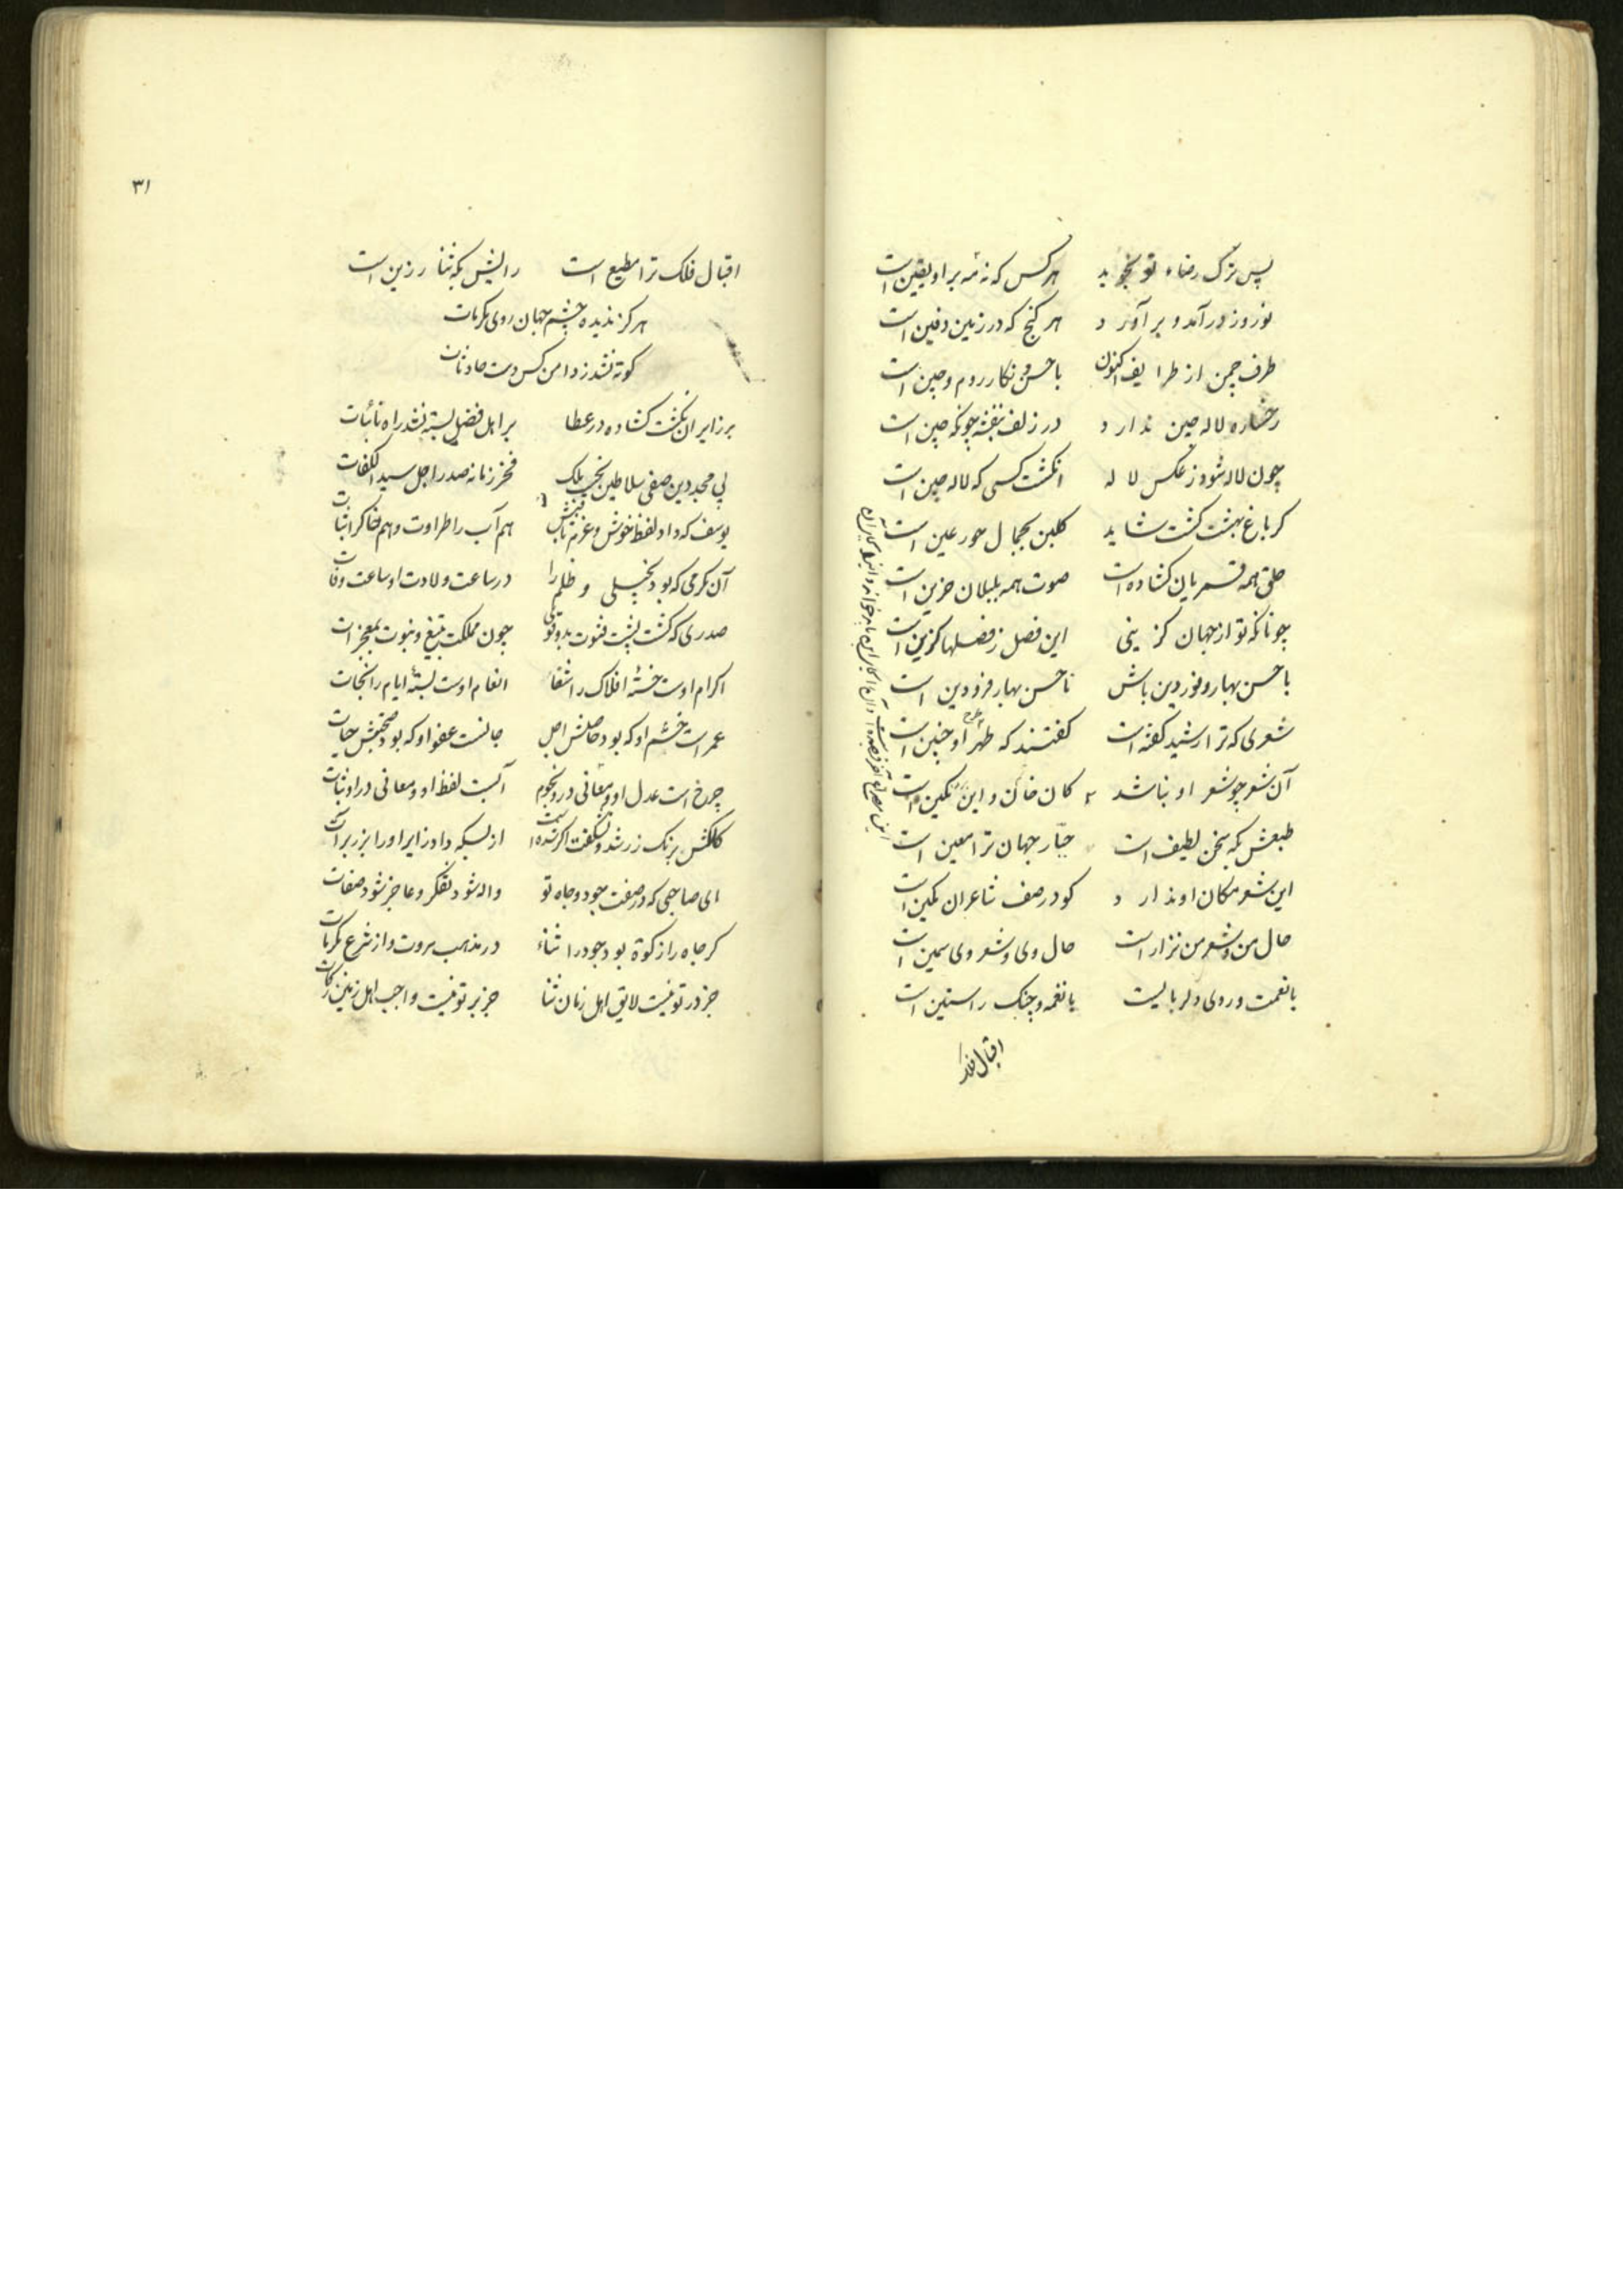 پس ترک رضاء تو نجوید هر کس که نه شه بر او یقین است
نوروز درآمد و برآورد هر گنج که در زمین دفین است
طرف چمن از طرایف اکنون با حسن نگار روم و چین است
رخساره لاله چین ندارد در زلف بنفشه چونکه چین است
چون لاله شود ز عکس لاله انگشت کسی که لاله چین است
کر باغ بهشت کشت شاید کلبن بجمال حور عین است
حلق همه قمریان کشاده است صوت همه بلبلان حزین است
چونانکه تو از جهان کزینی این فصل ز فصلها کزین است
با حسن بهار و نور دین باش تا حسن بهار فرودین است
شعری که ترا رشید کفته است کفتند که طهر او چنین است
آن شعر چو شعر او نباشد کان خائن و این مکین است
طبعش که بسخن لطیف است جبّار جهان ترا معین است
این شعر مکان او ندارد کو در صف شاعران مکین است
حال من و شعر من نزار است حال وی و شعر وی سمین است
با نعمت و روی دلربا لیت با نغمه و چنک راستین است
اقبال فلک
۳۱
اقبال فلک ترا مطیع است رایش که بثنا رزین است
هرکز ندیده چشم جهان روی مکرمات
کوته نشد ز دامن کس دست حادثات
بر زایران نکشت کشاده در عطا بر اهل فضل بسته نشد راه نائبات
بی مجد دین صفی سلاطین نجیب ملک فخر زمانه صدر اجل سید الکفات
یوسف که داد لفظ خوش و عزم ثابتش هم آب را طراوت و هم خاک را ثبات
آن مکرمی که بود بخیلی و ظلم را در ساعت ولادت او ساعت وفات
صدری که کشت پشت فتوت بدو قوی چون مملکت بتیغ و نبوت بمعجزات
اکرام اوست خسته افلاک را شفا انعام اوست بسته ایام را نجات
عمر است خشم او که بود حاصلش اجل جانست عفو او که بود صحبتش حیات
چرخ است عدل او و معانی درو نجوم آبست لفظ او و معانی در او نبات
کلکش برنک زر شد و نشکفت اکر شده است از بسکه داد زایر او را بزر برات
ای صاحبی که در صفت جود و جاه تو واله شود تفکر و عاجز شود صفات
کر جاه را زکوة بود جود را ثناء در مذهب مروت و از شرع مکرمات
جز در تو نیست لایق اهل زمان ثنا جز بر تو نیست واجب اهل زمین زکات